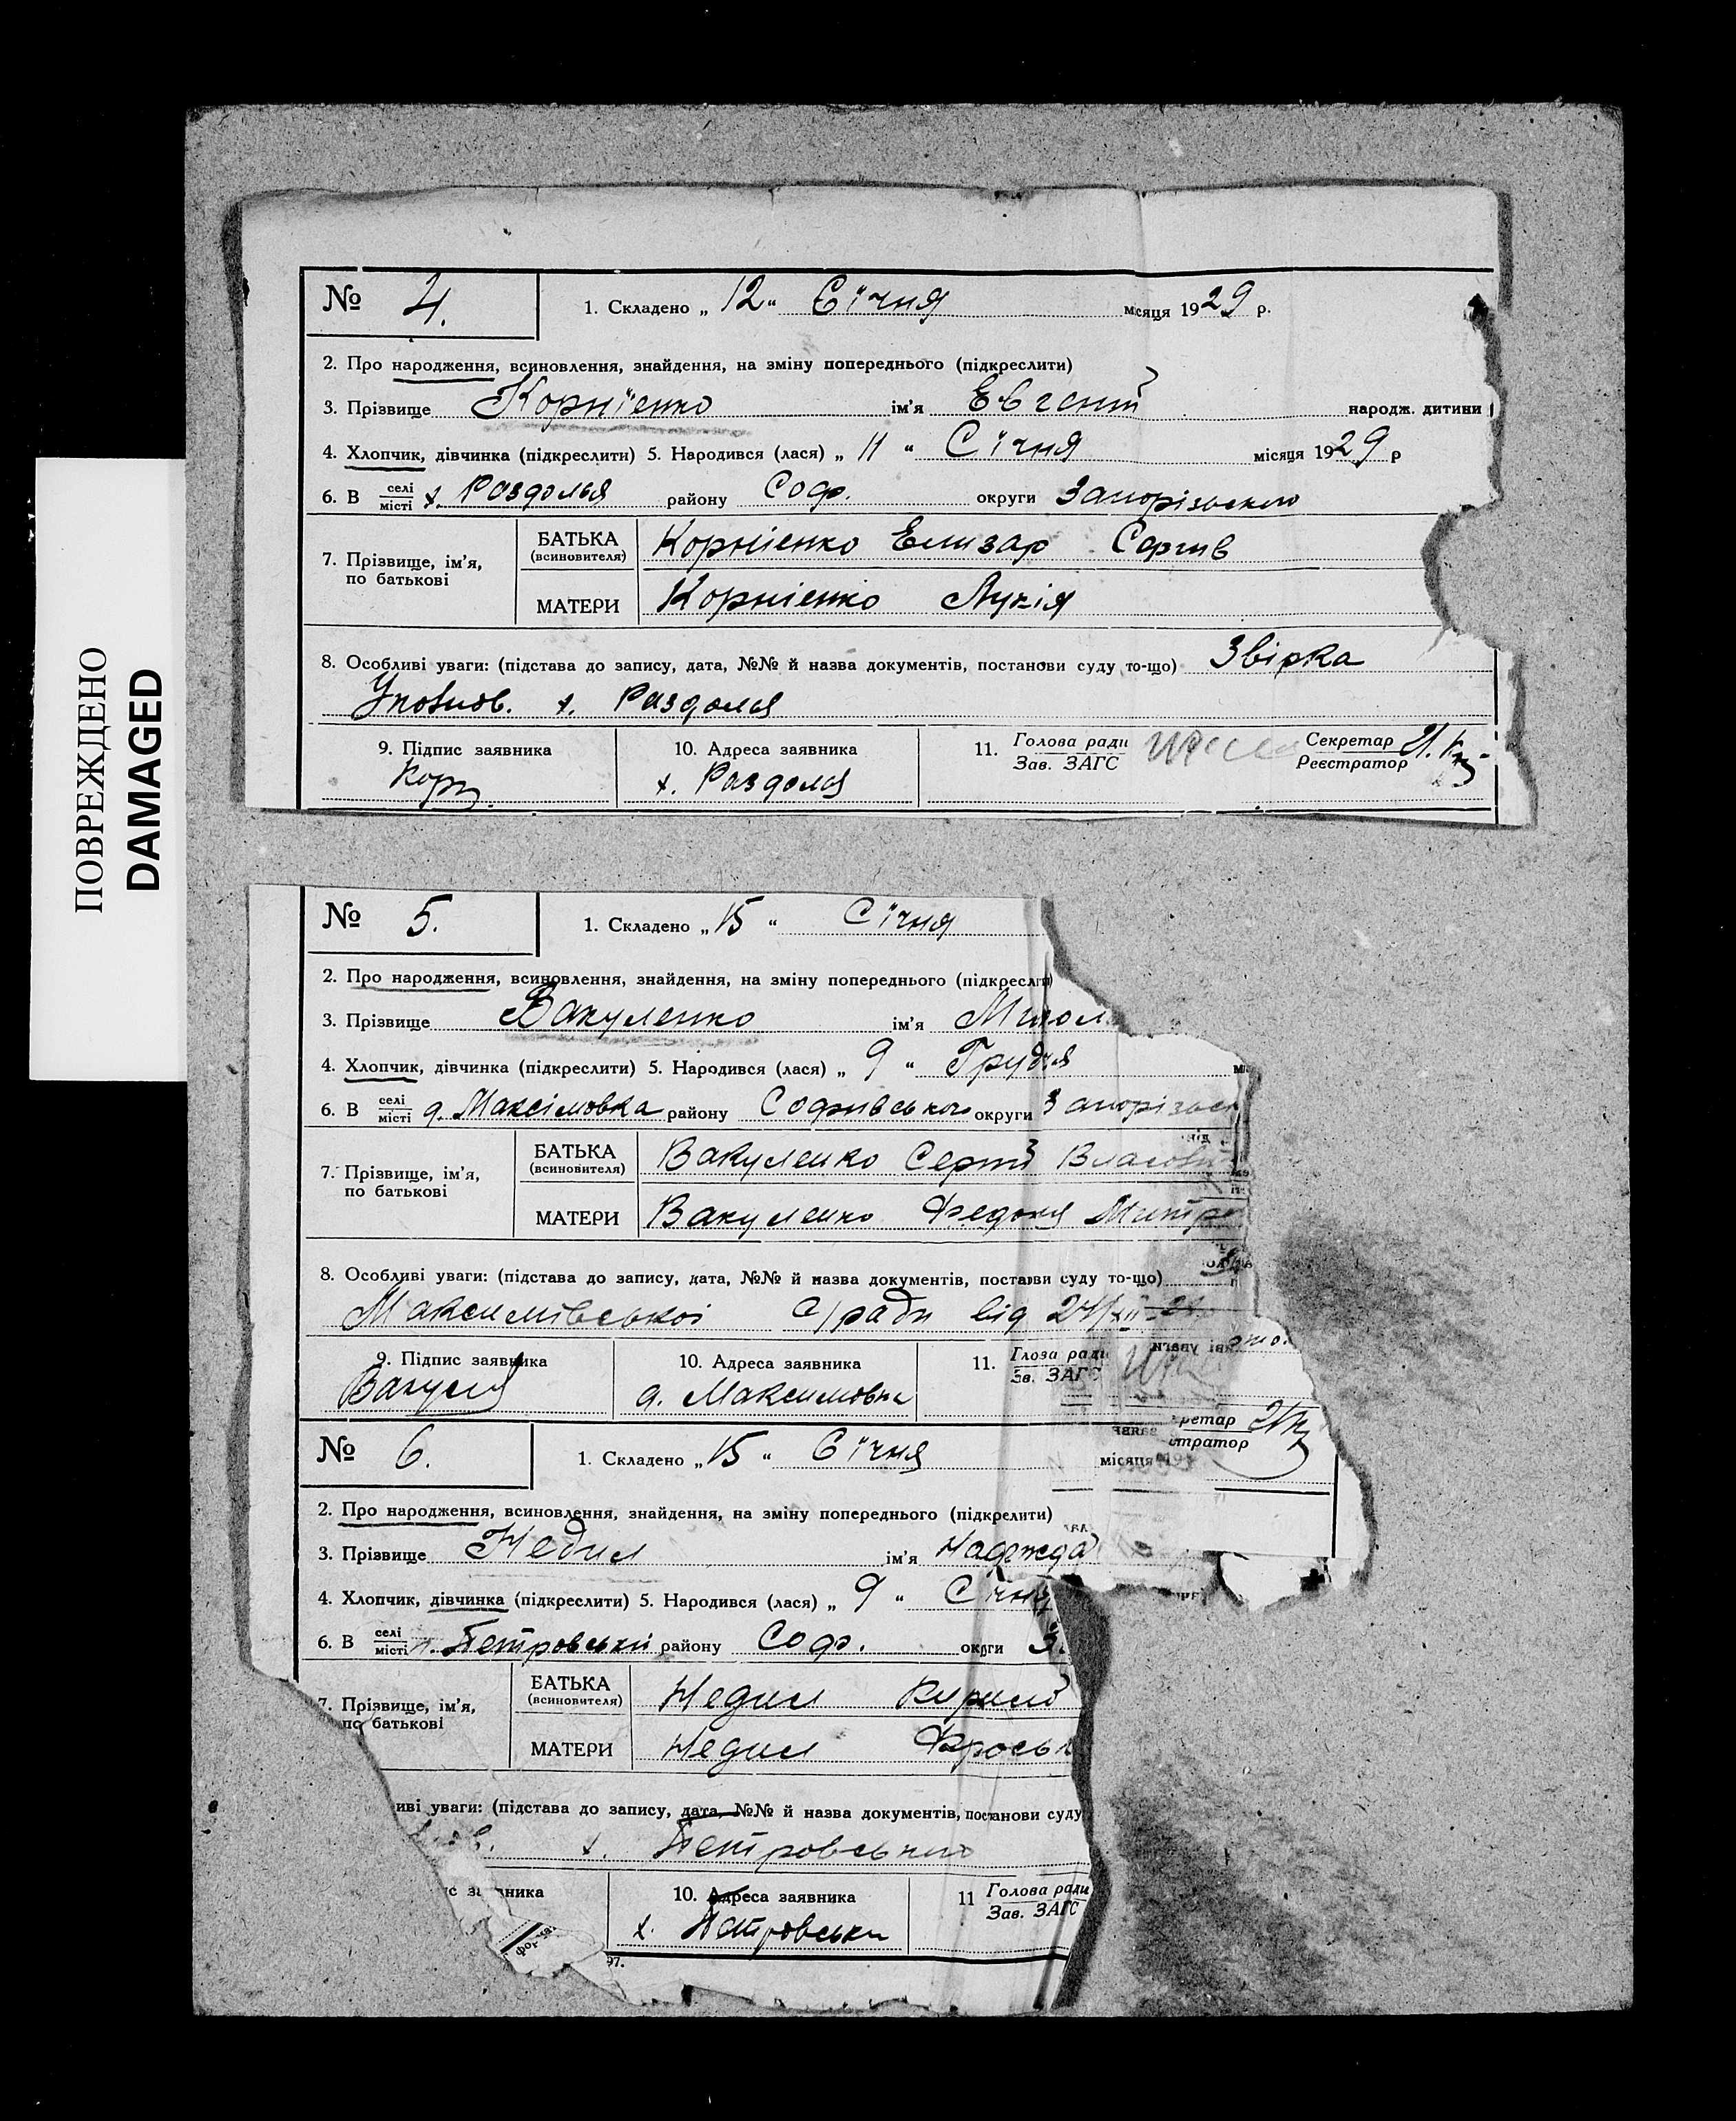 ПОВРЕЖДЕНО
DAMAGED
№ 4. 1. Складено „ 12 “ Січня місяця 1929 р.
2. Про народження, всиновлення, знайдення, на зміну попереднього (підкреслити)
3. Прізвище Корнїенко ім’я Евгений народж. дитини
4. Хлопчик, дівчинка (підкреслити) 5. Народився (лася) „ 11 “ Січня місяця 1929 р
6. В селі/місті х. Раздолья району Соф. округи Запорізького
7. Прізвище, ім’я, по батькові
БАТЬКА (всиновителя) Корнієнко Елизар Сергив
МАТЕРИ Корнієнко Лукія
8. Особливі уваги: (підстава до запису, дата, №№ й назва документів, постанови суду то-що) Звірка
Уповнов. х. Раздолья
9. Підпис заявника 10. Адреса заявника 11. Голова ради Секретар
Зав. ЗАГС Реєстратор
Корн х. Раздолья
№ 5. 1. Складено „ 15 “ Січня
2. Про народження, всиновлення, знайдення, на зміну попереднього (підкреслити)
3. Прізвище Вакуленко ім’я Микол
4. Хлопчик, дівчинка (підкреслити) 5. Народився (лася) „ 9 “ Грудня мі
6. В селі/місті д. Максімовка району Софиівського округи Запорізьк
7. Прізвище, ім’я, по батькові
БАТЬКА (всиновителя) Вакуленко Сергій Власови
МАТЕРИ Вакуленко Федокія Митро
8. Особливі уваги: (підстава до запису, дата, №№ й назва документів, постанови суду то-що)
Максимівської с/ради від 24/XII
9. Підпис заявника 10. Адреса заявника 11. Голова ради
Зв. ЗАГС
Вакуле д. Максимовка
ретар
стратор
№ 6. 1. Складено „ 15 “ Січня місяця 19
2. Про народження, всиновлення, знайдення, на зміну попереднього (підкрелити)
3. Прізвище Недил ім’я Надежда
4. Хлопчик, дівчинка (підкреслити) 5. Народився (лася) „ 9 “ Січня
6. В селі/місті Петровський району Соф. округи З
7. Прізвище, ім’я, по батькові
БАТЬКА (всиновителя) Недил Кирило
МАТЕРИ Недил Фрось
иві уваги: (підстава до запису, дата, №№ й назва документів, постанови суду
х. Петровського
с заявника 10. Адреса заявника 11 Голова ради
Зав. ЗАГС
х. Петровськи
97.